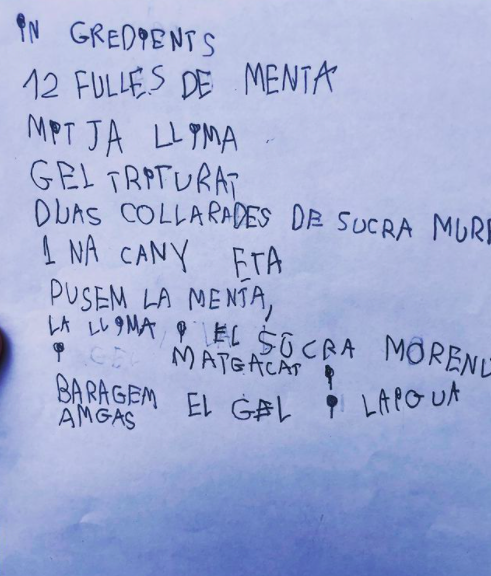 IN GREDIENTS
12 FULLES DE MENTA
MITJA LLIMA
GEL TRITURAT
DUAS COLLARADES DE SUCRA MURE
1 NA CANY ETA
PUSEM LA MENTA,
LA LLIMA I EL SUCRA MORENU
I MATGACAT I
BARAGEM EL GEL I LAIGUA
AMGAS